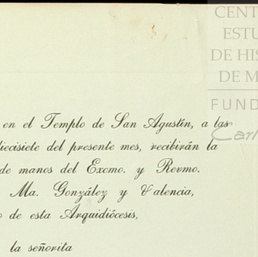 CENT
ESTU
DE HIS
DE M
FUND
Carl
en el Templo de San Agustín, a las
diecisiete del presente mes, recibirán la
de manos del Exomo. y Revmo.
Ma. González y Valencia,
o de esta Arquidiócesis,
la señorita